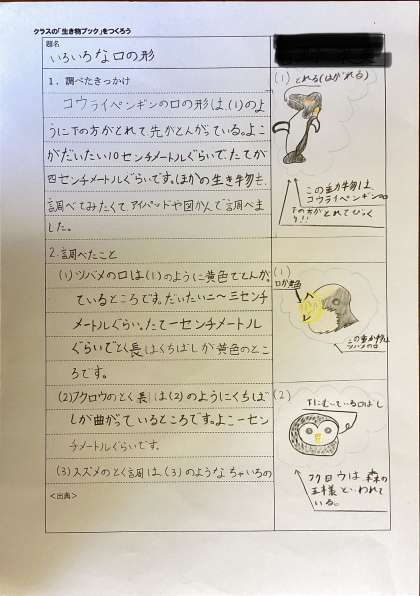 クラスの「生き物ブック」をつくろう
題名
いろいろな口の形
1.調べたきっかけ
コウライペンギンの口の形は、(1)のよ
うに下の方がとれて先がとんがっている。よこ
がだいたい10センチメートルぐらいで、たてが
四センチメートルぐらいです。ほかの生き物も、
調べてみたくてアイパッドや図かんで調べま
した。
2.調べたこと
(1)ツバメの口は(1)のように黄色でとんが
ているところです。だいたい二〜三センチ
メートルぐらい。たて一センチメートル
ぐらいでとく長はくちばしが黄色のとこ
ろです。
(2)フクロウのとく長は(2)のようにくちば
しが曲がっているところです。よこ一セン
チメートルぐらいです。
(3)スズメのとく調は、(3)のようなちゃいろの
<出典>
(1)とれる(はがれる)
この動物は
コウライペンギンの
下の方がとれてびっく
り!!
(1)
口が黄色
この動物は
ツバメの口
(2)
下にむいている口ばし
フクロウは森の
王様といわれて
いる。